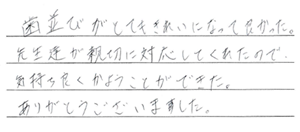 歯並びがとてもきれいになって良かった。
先生達が親切に対応してくれたので
気持ち良くかようことができた。
ありがとうございました。